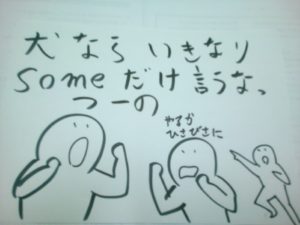 犬ならいきなり
someだけ言うな。
つーの
やるか
ひさびさに